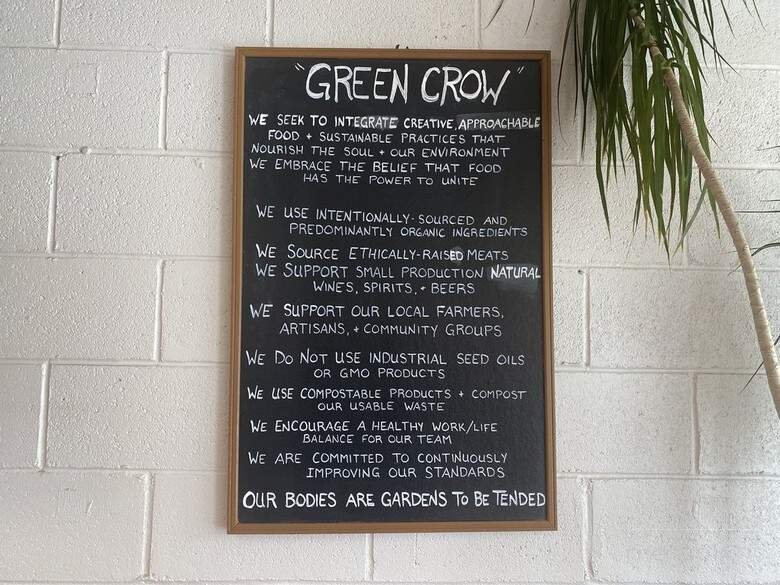 "GREEN CROW"
WE SEEK TO INTEGRATE CREATIVE, APPROACHABLE
FOOD + SUSTAINABLE PRACTICES THAT
NOURISH THE SOUL + OUR ENVIRONMENT
WE EMBRACE THE BELIEF THAT FOOD
HAS THE POWER TO UNITE
WE USE INTENTIONALLY-SOURCED AND
PREDOMINANTLY ORGANIC INGREDIENTS
WE SOURCE ETHICALLY-RAISED MEATS
WE SUPPORT SMALL PRODUCTION NATURAL
WINES, SPIRITS, + BEERS
WE SUPPORT OUR LOCAL FARMERS,
ARTISANS, + COMMUNITY GROUPS
WE DO NOT USE INDUSTRIAL SEED OILS
OR GMO PRODUCTS
WE USE COMPOSTABLE PRODUCTS + COMPOST
OUR USABLE WASTE
WE ENCOURAGE A HEALTHY WORK/LIFE
BALANCE FOR OUR TEAM
WE ARE COMMITTED TO CONTINUOUSLY
IMPROVING OUR STANDARDS
OUR BODIES ARE GARDENS TO BE TENDED